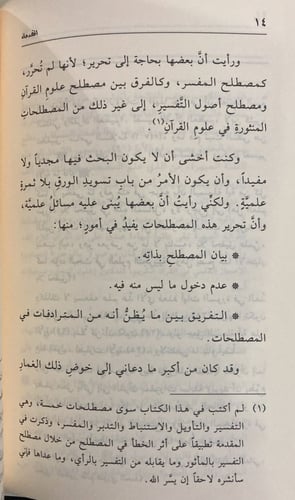 ١٤
المقدمة
ورأيت أنَّ بعضها بحاجة إلى تحرير؛ لأنها لم تُحرَّر،
كمصطلح المفسر، وكالفرق بين مصطلح علوم القرآن
ومصطلح أصول التَّفسيرِ، إلى غير ذلك من المصطلحات
المنثورة في علوم القرآن(١).
وكنت أخشى أن لا يكون البحث فيها مجدياً ولا
مفيداً، وأن يكون الأمرُ من بابِ تسويد الورقِ بلا ثمرةٍ
علميَّةٍ. ولكنِّي رأيتُ أنَّ بعضها يُبنى عليه مسائل علميَّة،
وأنَّ تحرير هذه المصطلحات يفيدُ في أمورٍ؛ منها:
* بيان المصطلحِ بذاتِه.
* عدم دخول ما ليس منه فيه.
* التفريق بين ما يُظنُّ أنه من المترادفات في
المصطلحات.
وقد كان من أكبر ما دعاني إلى خوض ذلك الغمار
(١) لم أكتب في هذا الكتاب سوى مصطلحات خمسة، وهي
التفسير والتأويل والاستنباط والتدبر والمفسر، وذكرت في
المقدمة تطبيقاً على أثر الخطأ في المصطلح من خلال مصطلح
التفسير بالمأثور وما يقابله من التفسير بالرأي، وما عداها فإني
سأنشره لاحقاً إن يسَّر الله.